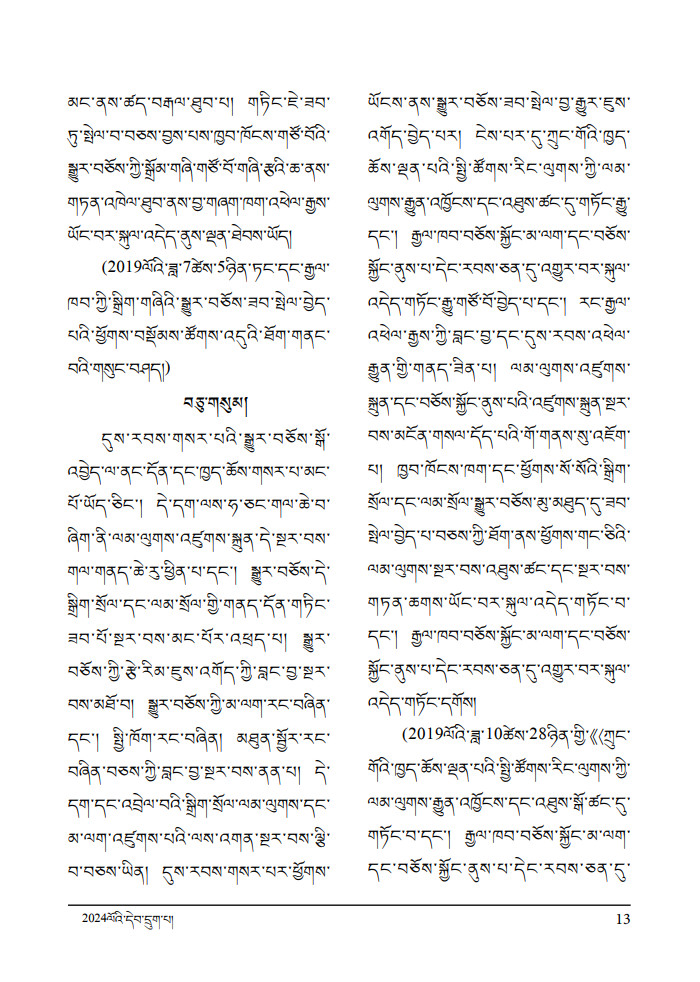 མང་ནས་ཚད་བརྒལ་ཐུབ་པ། གཏིང་ཇེ་ཟབ་
ཏུ་སྤེལ་བ་བཅས་བྱས་པས་ཁྱབ་ཁོངས་གཙོ་བོའི་
སྒྱུར་བཅོས་ཀྱི་སྒྲོམ་གཞི་གཙོ་བོ་གཞི་རྩའི་ཆ་ནས་
གཏན་འཁེལ་ཐུབ་ནས་བྱ་གཞག་ཁག་འཕེལ་རྒྱས་
ཡོང་བར་སྐུལ་འདེད་ནུས་ལྡན་ཐེབས་ཡོད།
(2019ལོའི་ཟླ་7ཚེས་5ཉིན་ཏང་དང་རྒྱལ་
ཁབ་ཀྱི་སྒྲིག་གཞིའི་སྒྱུར་བཅོས་ཟབ་སྤེལ་བྱེད་
པའི་ཕྱོགས་བསྡོམས་ཚོགས་འདུའི་ཐོག་གནང་
བའི་གསུང་བཤད།)
བཅུ་གསུམ།
དུས་རབས་གསར་པའི་སྒྱུར་བཅོས་སྒོ་
འབྱེད་ལ་ནང་དོན་དང་ཁྱད་ཆོས་གསར་པ་མང་
པོ་ཡོད་ཅིང་། དེ་དག་ལས་ཧ་ཅང་གལ་ཆེ་བ་
ཞིག་ནི་ལམ་ལུགས་འཛུགས་སྐྲུན་དེ་སྔར་བས་
གལ་གནད་ཆེ་རུ་ཕྱིན་པ་དང་། སྒྱུར་བཅོས་དེ་
སྒྲིག་སྲོལ་དང་ལམ་སྲོལ་གྱི་གནད་དོན་གཏིང་
ཟབ་པོ་སྔར་བས་མང་པོར་འཕྲད་པ། སྒྱུར་
བཅོས་ཀྱི་རྩེ་རིམ་ཇུས་འགོད་ཀྱི་བླང་བྱ་སྔར་
བས་མཐོ་བ། སྒྱུར་བཅོས་ཀྱི་མ་ལག་རང་བཞིན་
དང་། སྤྱི་ཁོག་རང་བཞིན། མཐུན་སྦྱོར་རང་
བཞིན་བཅས་ཀྱི་བླང་བྱ་སྔར་བས་ནན་པ། དེ་
དག་དང་འབྲེལ་བའི་སྒྲིག་སྲོལ་ལམ་ལུགས་དང་
མ་ལག་འཛུགས་པའི་ལས་འགན་སྔར་བས་ལྕི་
བ་བཅས་ཡིན། དུས་རབས་གསར་པར་ཕྱོགས་
ཡོངས་ནས་སྒྱུར་བཅོས་ཟབ་སྤེལ་བྱ་རྒྱུར་ཇུས་
འགོད་བྱེད་པར། ངེས་པར་དུ་ཀྲུང་གོའི་ཁྱད་
ཆོས་ལྡན་པའི་སྤྱི་ཚོགས་རིང་ལུགས་ཀྱི་ལམ་
ལུགས་རྒྱུན་འཁྱོངས་དང་འཐུས་ཚང་དུ་གཏོང་རྒྱུ་
དང་། རྒྱལ་ཁབ་བཅོས་སྐྱོང་མ་ལག་དང་བཅོས་
སྐྱོང་ནུས་པ་དེང་རབས་ཅན་དུ་འགྱུར་བར་སྐུལ་
འདེད་གཏོང་རྒྱུ་གཙོ་བོ་བྱེད་པ་དང་། རང་རྒྱལ་
འཕེལ་རྒྱས་ཀྱི་བླང་བྱ་དང་དུས་རབས་འཕེལ་
རྒྱུན་གྱི་གནད་ཟིན་པ། ལམ་ལུགས་འཛུགས་
སྐྲུན་དང་བཅོས་སྐྱོང་ནུས་པའི་འཛུགས་སྐྲུན་སྔར་
བས་མངོན་གསལ་དོད་པའི་གོ་གནས་སུ་འཇོག་
པ། ཁྱབ་ཁོངས་ཁག་དང་ཕྱོགས་སོ་སོའི་སྒྲིག་
སྲོལ་དང་ལམ་སྲོལ་སྒྱུར་བཅོས་མུ་མཐུད་དུ་ཟབ་
སྤེལ་བྱེད་པ་བཅས་ཀྱི་ཐོག་ནས་ཕྱོགས་གང་ཅིའི་
ལམ་ལུགས་སྔར་བས་འཐུས་ཚང་དང་སྔར་བས་
གཏན་ཆགས་ཡོང་བར་སྐུལ་འདེད་གཏོང་བ་
དང་། རྒྱལ་ཁབ་བཅོས་སྐྱོང་མ་ལག་དང་བཅོས་
སྐྱོང་ནུས་པ་དེང་རབས་ཅན་དུ་འགྱུར་བར་སྐུལ་
འདེད་གཏོང་དགོས།
(2019ལོའི་ཟླ་10ཚེས་28ཉིན་གྱི་《〈ཀྲུང་
གོའི་ཁྱད་ཆོས་ལྡན་པའི་སྤྱི་ཚོགས་རིང་ལུགས་ཀྱི་
ལམ་ལུགས་རྒྱུན་འཁྱོངས་དང་འཐུས་སྒོ་ཚང་དུ་
གཏོང་བ་དང་། རྒྱལ་ཁབ་བཅོས་སྐྱོང་མ་ལག་
དང་བཅོས་སྐྱོང་ནུས་པ་དེང་རབས་ཅན་དུ་
2024ལོའི་དེབ་དྲུག་པ། 13